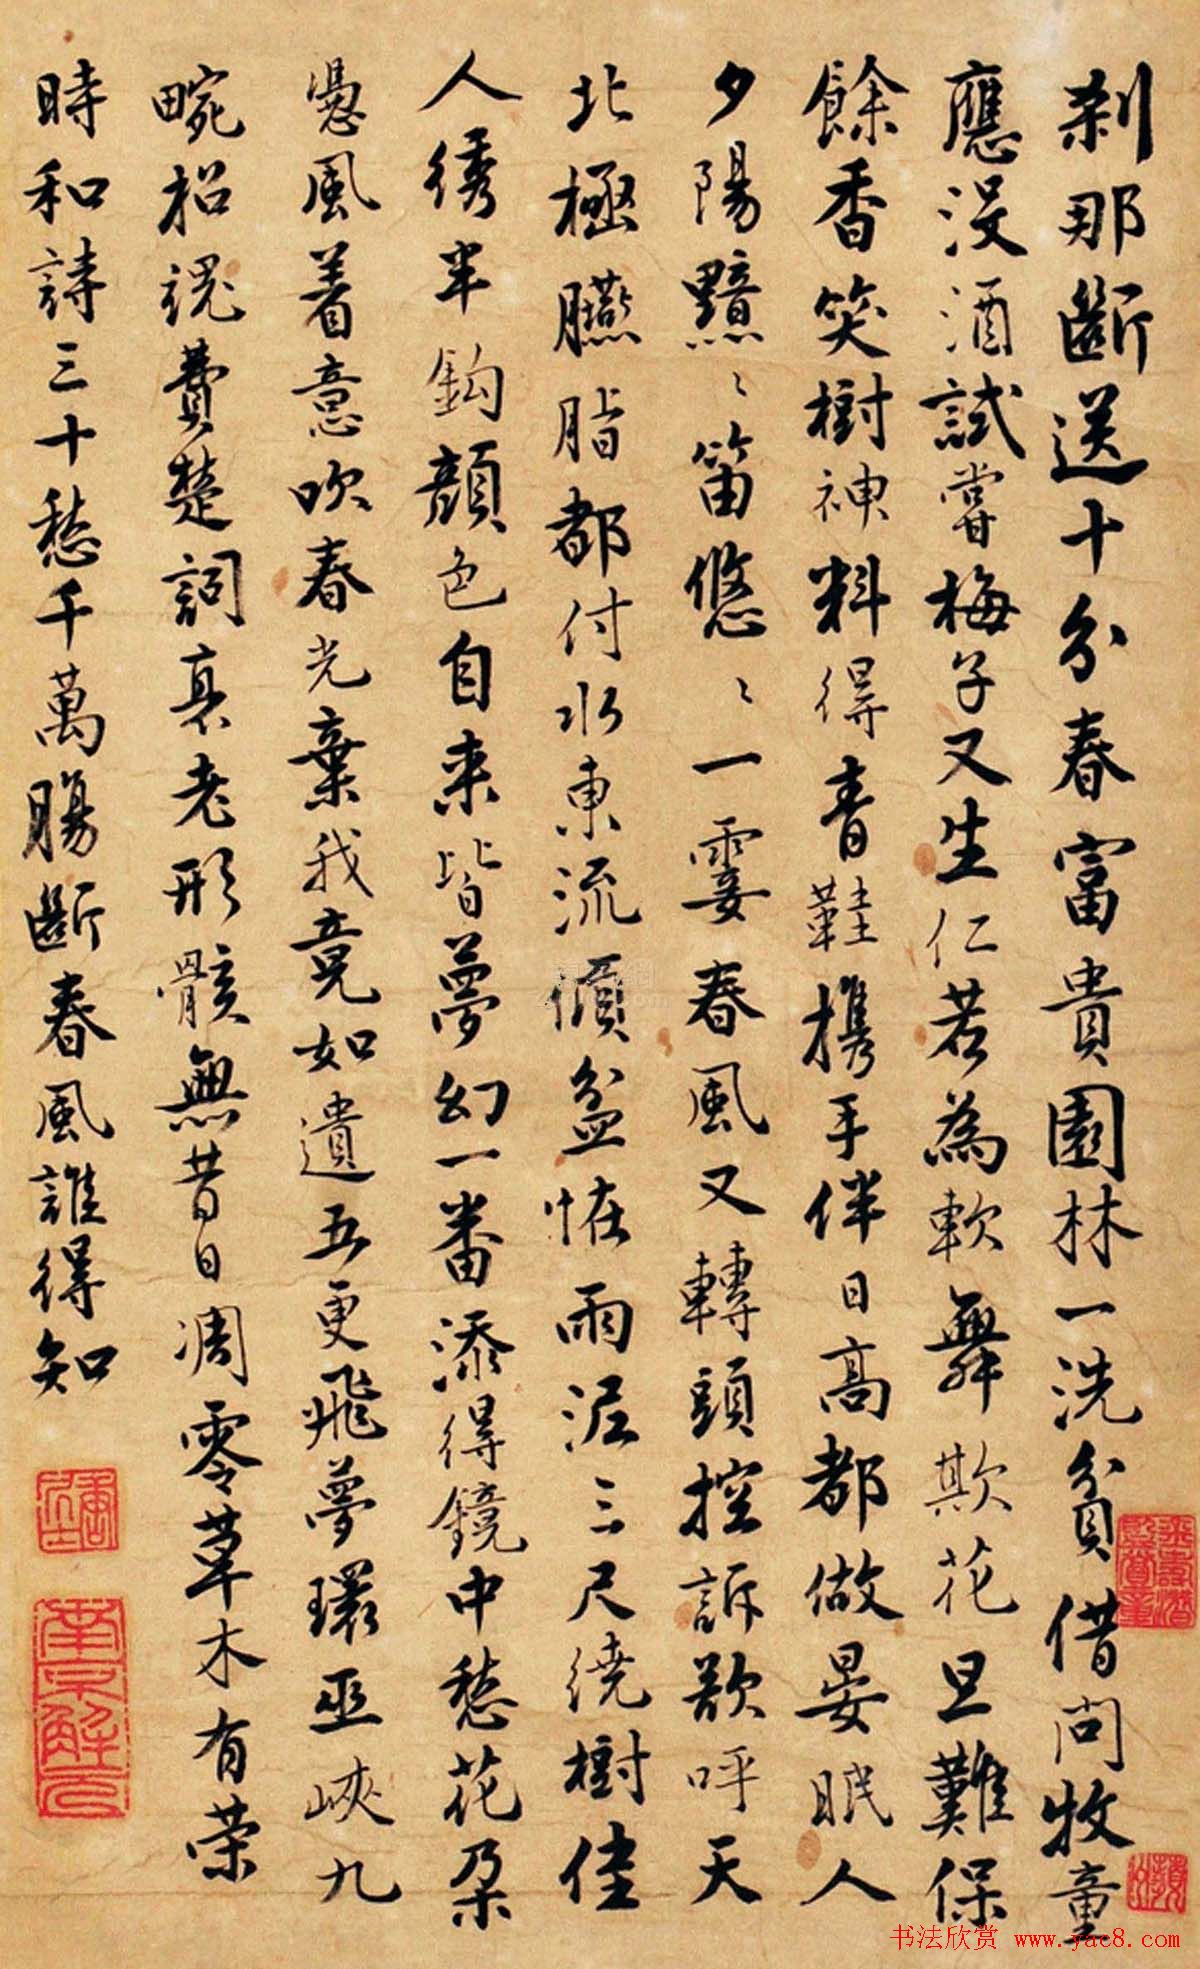 剎那斷送十分春富貴園林一洗貧借問牧童
應沒酒試嘗梅子又生仁若為軟舞欺花旦難保
餘香笑樹神料得青鞋攜手伴日高都做晏眠人
夕陽黯〻笛悠〻一霎春風又轉頭控訴欲呼天
北極臙脂都付水東流傾盆怪雨泥三尺繞樹佳
人綉半鈎顏色自來皆夢幻一番添得鏡中愁花朵
憑風着意吹春光棄我竟如遺五更飛夢環巫峽九
畹招魂費楚詞衰老形骸無昔日凋零草木有荣
時和詩三十愁千萬腸斷春風誰得知
南京解元
书法欣赏 www.yac8.com